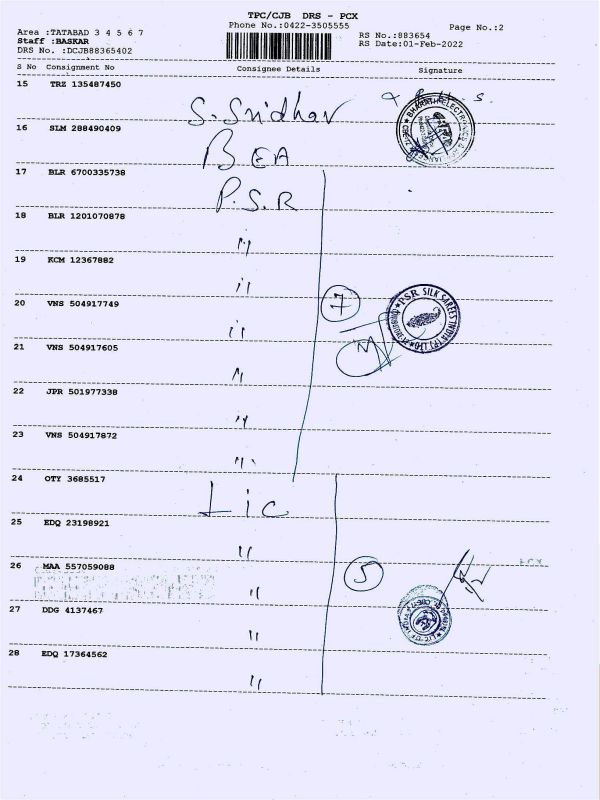 TPC/CJB DRS - PCX
Phone No.:0422-3505555
Page No.:2
Area :TATABAD 3 4 5 6 7
Staff :BASKAR
DRS No. :DCJB88365402
RS No.:883654
RS Date:01-Feb-2022
S No Consignment No Consignee Details Signature
15 TRZ 135487450 S. Sridhar
16 SLM 288490409 BEA
17 BLR 6700335738 P.S.R
18 BLR 1201070878 "
19 KCM 12367882 "
20 VNS 504917749 " 7
P.S.R. SILK SAREES INDIA
21 VNS 504917605 "
22 JPR 501977338 "
23 VNS 504917872 "
24 OTY 3685517 Lic
25 EDQ 23198921 "
26 MAA 557059088 " 5
27 DDG 4137467 "
28 EDQ 17364562 "